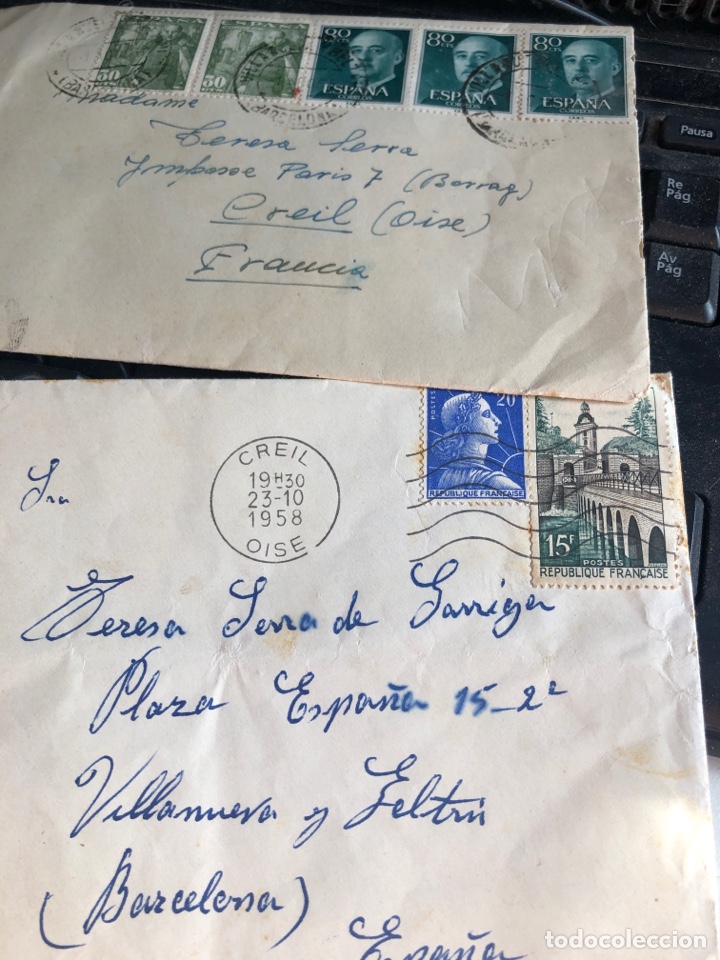 50
50
80 CTS
ESPAÑA
CORREOS
80 CTS
ESPAÑA
CORREOS
80 CTS
ESPAÑA
CORREOS
BARCELONA
Madame
Teresa Serra
Impasse Paris 7 (Borrag)
Creil (Oise)
Francia
Pausa
Re Pág
Av Pág
CREIL
19H30
23-10
1958
OISE
POSTES
20
REPUBLIQUE FRANÇAISE
15F
POSTES
REPUBLIQUE FRANÇAISE
Sra
Teresa Serra de Garriga
Plaza España 15-2ª
Villanueva y Geltrú
(Barcelona)
España
todocoleccion